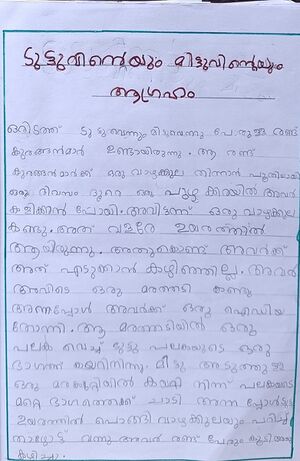 ടുട്ടുവിന്റെയും മിട്ടുവിന്റെയും
ആഗ്രഹം
ഒരിടത്ത് ടുട്ടുവെന്നും മിട്ടുവെന്നും പേരുള്ള രണ്ട്
കുരങ്ങൻമാർ ഉണ്ടായിരുന്നു. ആ രണ്ട്
കുരങ്ങൻമാർക്ക് ഒരു വാഴക്കുല തിന്നാൻ
ഒരു ദിവസം ദൂരെ ഒരു പുഴ ക്കരയിൽ അവർ
കളിക്കാൻ പോയി. അവിടുന്ന് ഒരു വാഴക്കുല
കണ്ടു. അത് വളരെ ഉയരത്തിൽ
ആയിരുന്നു. അതുകൊണ്ട് അവർക്ക്
അത് എടുക്കാൻ കഴിഞ്ഞില്ല. അവർ
അവിടെ ഒരു മരത്തടി കണ്ടു
അന്നേപ്പോൾ അവർക്ക് ഒരു ഐഡിയ
തോന്നി. ആ മരത്തടിയിൽ ഒരു
പലക വെച്ച് ടുട്ടു പലകയുടെ ഒരു
ഭാഗത്ത് കയറിനിന്നു. മിട്ടു അടുത്തുള്ള
ഒരു മരക്കുറ്റിയിൽ കയറി നിന്ന് പലകയുടെ
മറ്റെ ഭാഗത്തേക്ക് ചാടി അന്നേപ്പോൾ ടുട്ടു
ഉയരത്തിൽ പൊങ്ങി വാഴക്കുലയും പറിച്ച്
താഴോട്ട് വന്നു അവർ രണ്ട് പേരും കൂടി അത്
കഴിച്ചു.